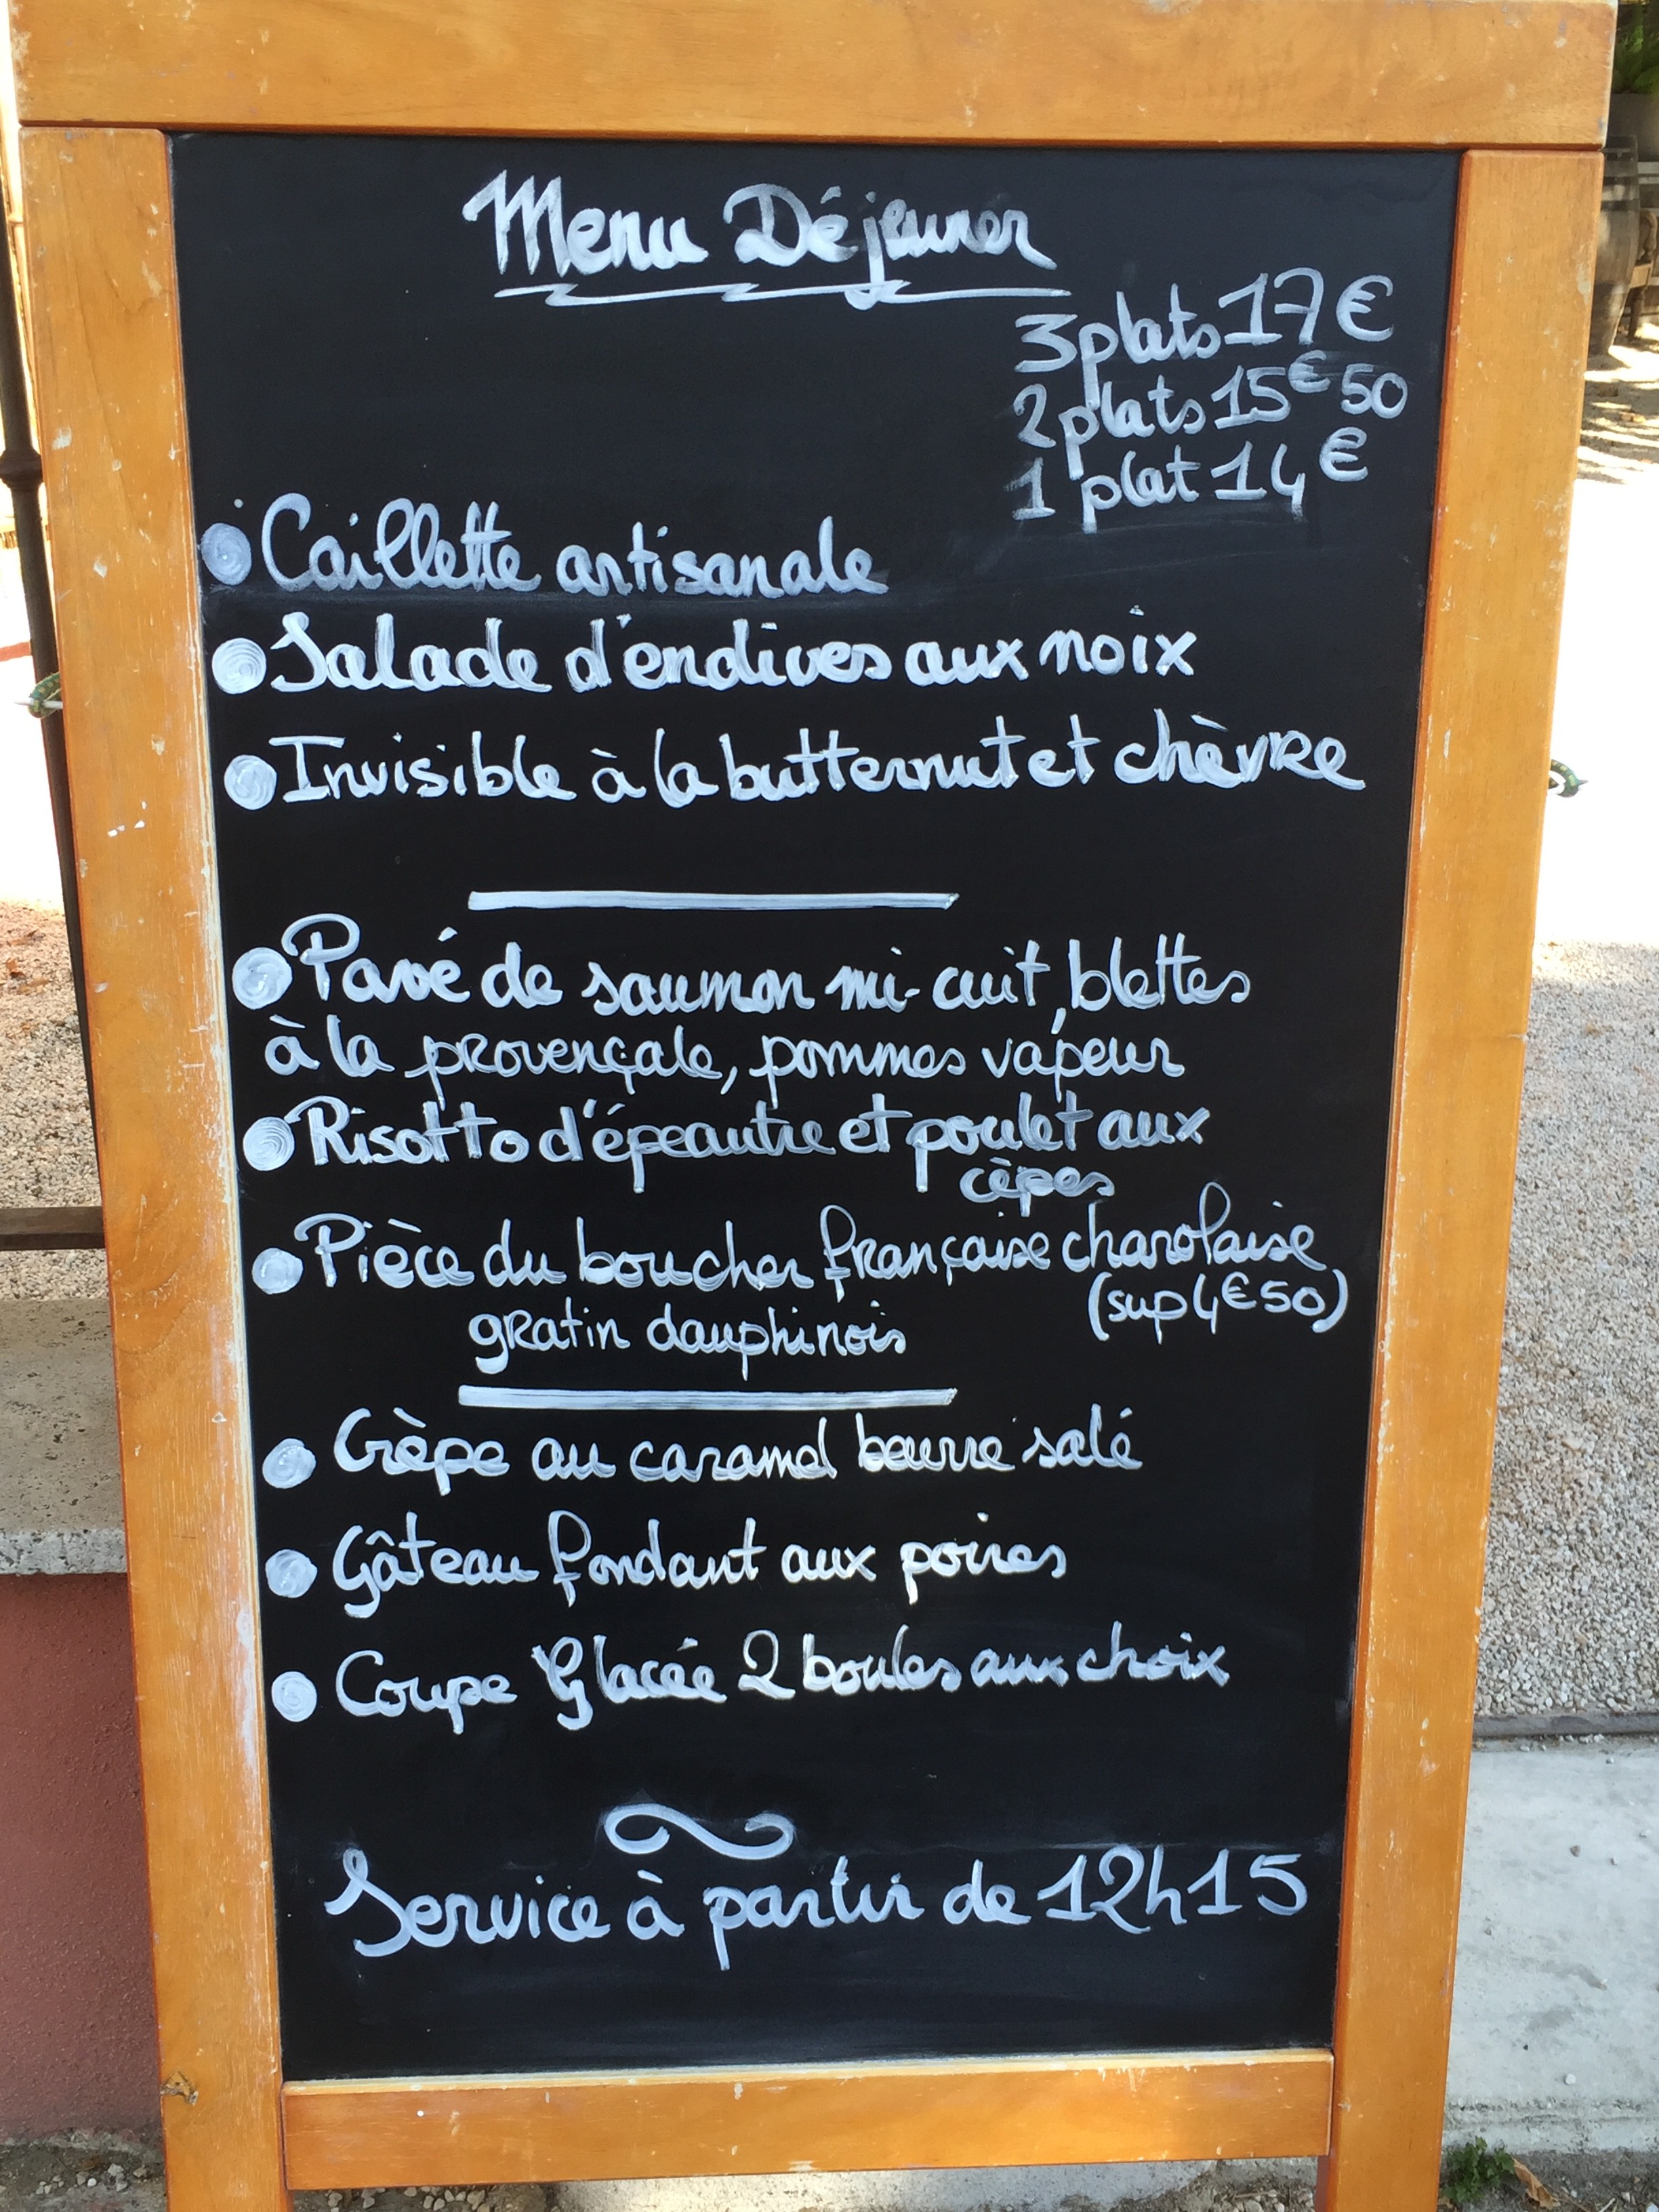 Menu Déjeuner
3 plats 17€
2 plats 15€50
1 plat 14€
Caillette artisanale
Salade d'endives aux noix
Invisible à la butternut et chèvre
Pavé de saumon mi-cuit, blettes
à la provençale, pommes vapeur
Risotto d'épeautre et poulet aux
cèpes
Pièce du boucher française charolaise
(sup 4€50)
gratin dauphinois
Crèpe au caramel beurre salé
Gâteau fondant aux poires
Coupe Glacée 2 boules aux choix
Service à partir de 12h15